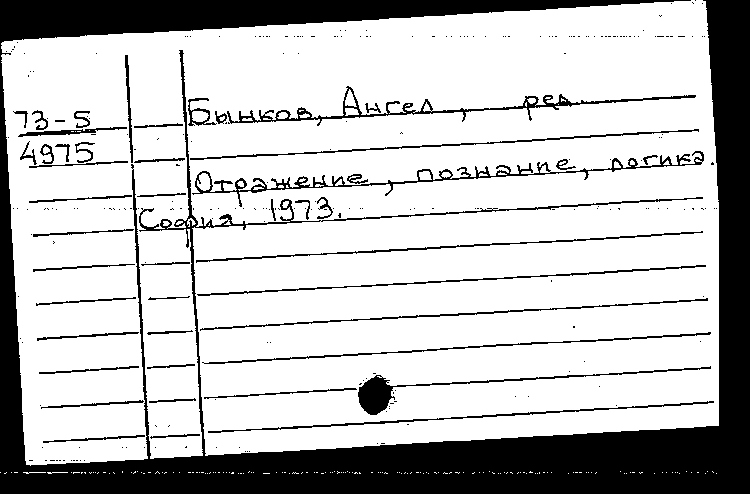 73-5
4975
Бынков, Ангел, ред.
Отражение, познание, логика.
София, 1973.